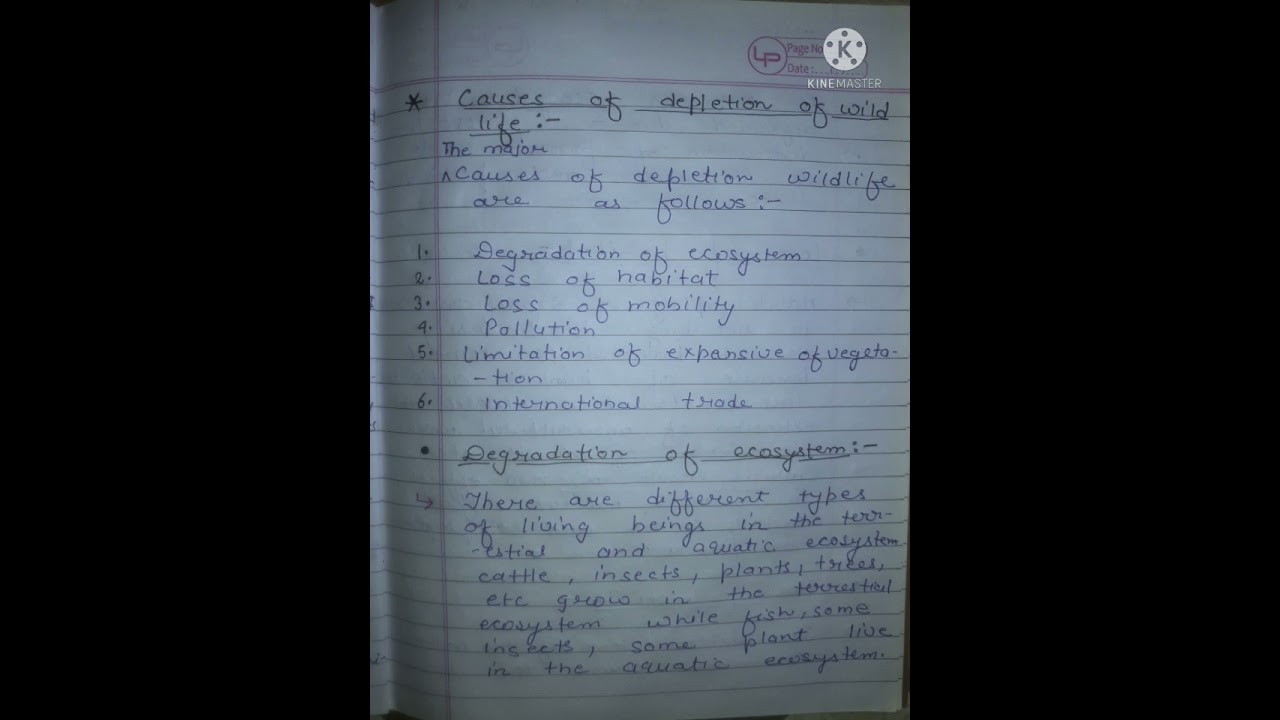 Page No
Date:
KINEMASTER
* Causes of depletion of wild
life :-
The major
^ Causes of depletion wildlife
are as follows :-
1. Degradation of ecosystem
2. Loss of habitat
3. Loss of mobility
4. Pollution
5. Limitation of expansive of vegeta-
-tion
6. International trade
• Degradation of ecosystem :-
↳ There are different types
of living beings in the terr-
-estial and aquatic ecosystem
cattle, insects, plants, trees,
etc grow in the terrestial
ecosystem while fish, some
insects, some plant live
in the aquatic ecosystem.